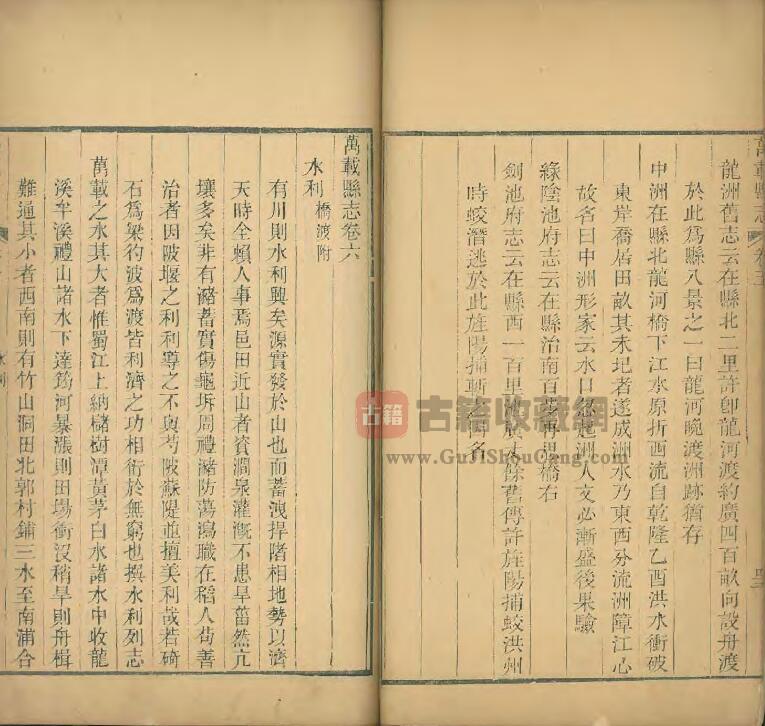 龍洲舊志云在縣北二里許卽龍河渡約廣四百畝向設舟渡
於此爲縣八景之一曰龍河晚渡洲跡猶存
中洲在縣北龍河橋下江水原折西流自乾隆乙酉洪水衝破
東岸喬居田畝其未圯者遂成洲水乃東西分流洲障江心
故名曰中洲形家云水口忽起洲人文必漸盛後果驗
綠陰池府志云在縣治南百步再思橋右
劍池府志云在縣西一百里池廣丈餘舊傳許旌陽捕蛟洪州
時蛟潛逃於此旌陽捕斬名
萬載縣志卷六
水利橋渡附
有川則水利興矣源實發於山也而蓄洩捍堵相地勢以濟
天時全賴人事焉邑田近山者資澗泉灌漑不患旱菑然亢
壤多矣非有瀦蓄實傷龜坼周禮瀦防蕩瀉職在稻人苟善
治者因陂堰之利利導之不與芍陂蘇隄並擅美利哉若碕
石爲梁彴波爲渡皆利濟之功相衍於無窮也撰水利列志
萬載之水其大者惟蜀江上納儲樹潭黃茅白水諸水中收龍
溪牟溪禮山諸水下達筠河暴漲則田塲衝沒稍旱則舟楫
難通其小者西南則有竹山洞田北郭村鋪三水至南浦合
古籍
古籍收藏網
www.GuJiShouCang.com